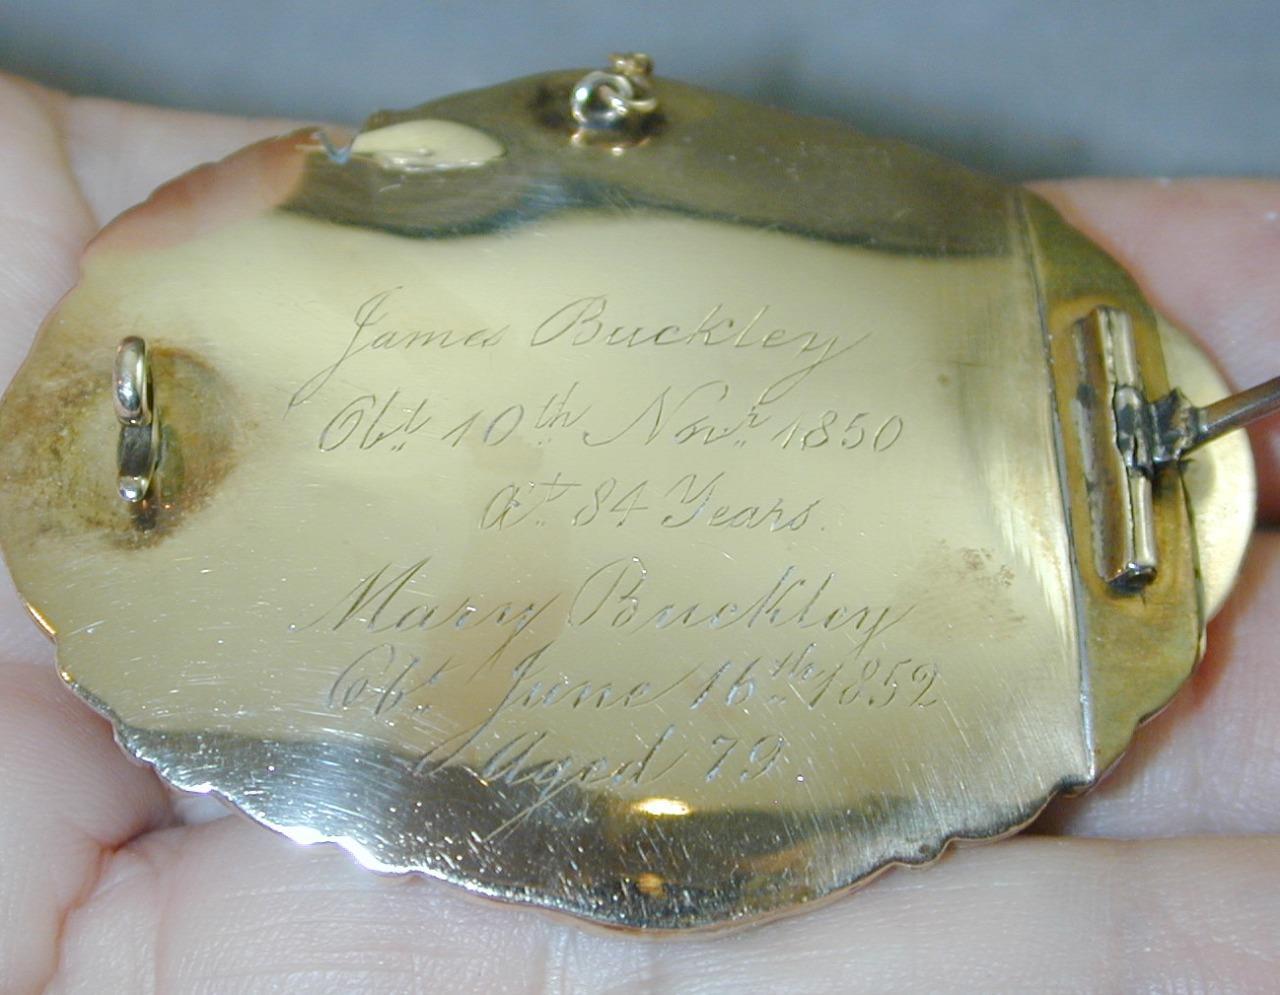 James Buckley
Obt. 10th Novr. 1850
Æt. 84 Years.
Mary Buckley
Obt. June 16th 1852
Aged 79.